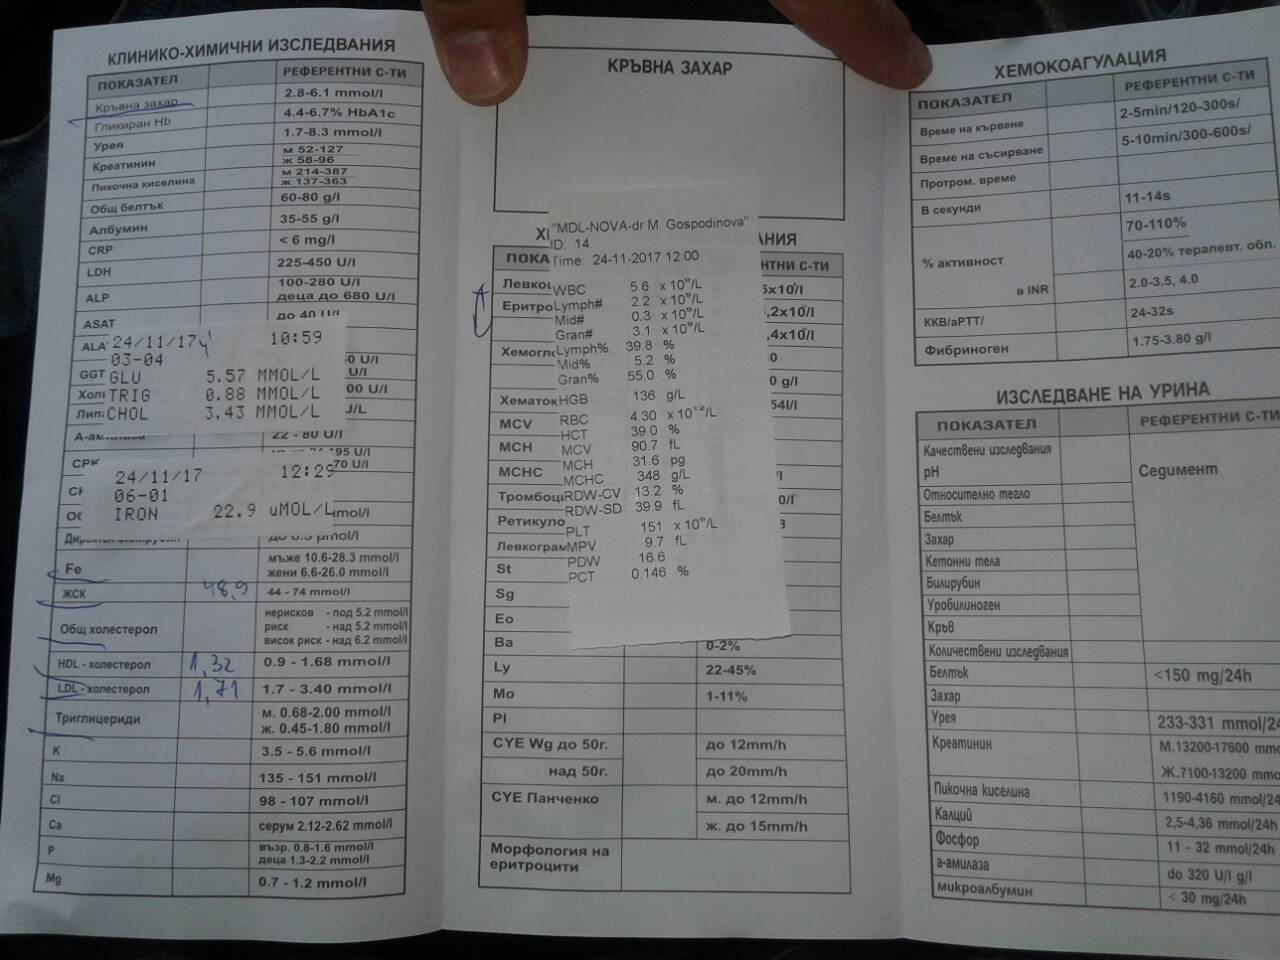 КЛИНИКО-ХИМИЧНИ ИЗСЛЕДВАНИЯ
ПОКАЗАТЕЛ РЕФЕРЕНТНИ С-ТИ
Кръвна захар 2.8-6.1 mmol/l
Гликиран Hb 4.4-6.7% HbA1c
Урея 1.7-8.3 mmol/l
Креатинин м 52-127
ж 58-96
Пикочна киселина м 214-387
ж 137-363
Общ белтък 60-80 g/l
Албумин 35-55 g/l
CRP < 6 mg/l
LDH 225-450 U/l
ALP 100-280 U/l
деца до 680 U/l
ASAT до 40 U/l
ALA
24/11/17 10:59
03-04
GGT U/l
GLU 5.57 MMOL/L
TRIG 0.88 MMOL/L
CHOL 3.43 MMOL/L
22 - 80 U/l
24/11/17 12:29
06-01
IRON 22.9 uMOL/L
Fe мъже 10.6-28.3 mmol/l
жени 6.6-26.0 mmol/l
ЖСК 48,9 44 - 74 mmol/l
Общ холестерол нерисков - под 5.2 mmol/l
риск - над 5.2 mmol/l
висок риск - над 6.2 mmol/l
HDL - холестерол 1,32 0.9 - 1.68 mmol/l
LDL - холестерол 1,71 1.7 - 3.40 mmol/l
Триглицериди м. 0.68-2.00 mmol/l
ж. 0.45-1.80 mmol/l
K 3.5 - 5.6 mmol/l
Na 135 - 151 mmol/l
Cl 98 - 107 mmol/l
Ca серум 2.12-2.62 mmol/l
P възр. 0.8-1.6 mmol/l
деца 1.3-2.2 mmol/l
Mg 0.7 - 1.2 mmol/l
КРЪВНА ЗАХАР
"MDL-NOVA-dr M. Gospodinova"
ID: 14
Time: 24-11-2017 12:00
WBC 5.6 x 10⁹/L
Lymph# 2.2 x 10⁹/L
Mid# 0.3 x 10⁹/L
Gran# 3.1 x 10⁹/L
Lymph% 39.8 %
Mid% 5.2 %
Gran% 55.0 %
HGB 136 g/L
RBC 4.30 x 10¹²/L
HCT 39.0 %
MCV 90.7 fL
MCH 31.6 pg
MCHC 348 g/L
RDW-CV 13.2 %
RDW-SD 39.9 fL
PLT 151 x 10⁹/L
MPV 9.7 fL
PDW 16.6
PCT 0.146 %
MCV
MCH
MCHC
St
Sg
Eo
Ba 0-2%
Ly 22-45%
Mo 1-11%
Pl
СУЕ Wg до 50г. до 12mm/h
над 50г. до 20mm/h
СУЕ Панченко м. до 12mm/h
ж. до 15mm/h
Морфология на
еритроцити
ХЕМОКОАГУЛАЦИЯ
ПОКАЗАТЕЛ РЕФЕРЕНТНИ С-ТИ
Време на кървене 2-5min/120-300s/
Време на съсирване 5-10min/300-600s/
Протром. време
В секунди 11-14s
% активност 70-110%
40-20% терапевт. обл.
в INR 2.0-3.5, 4.0
ККВ/aPTT/ 24-32s
Фибриноген 1.75-3.80 g/l
ИЗСЛЕДВАНЕ НА УРИНА
ПОКАЗАТЕЛ РЕФЕРЕНТНИ С-ТИ
Качествени изследвания
pH
Седимент
Относително тегло
Белтък
Захар
Кетонни тела
Билирубин
Уробилиноген
Кръв
Количествени изследвания
Белтък <150 mg/24h
Захар
Урея 233-331 mmol/24
Креатинин М.13200-17600 mm
Ж.7100-13200 mmo
Пикочна киселина 1190-4160 mmol/24
Калций 2,5-4,36 mmol/24h
Фосфор 11 - 32 mmol/24h
а-амилаза до 320 U/l g/l
микроалбумин < 30 mg/24h